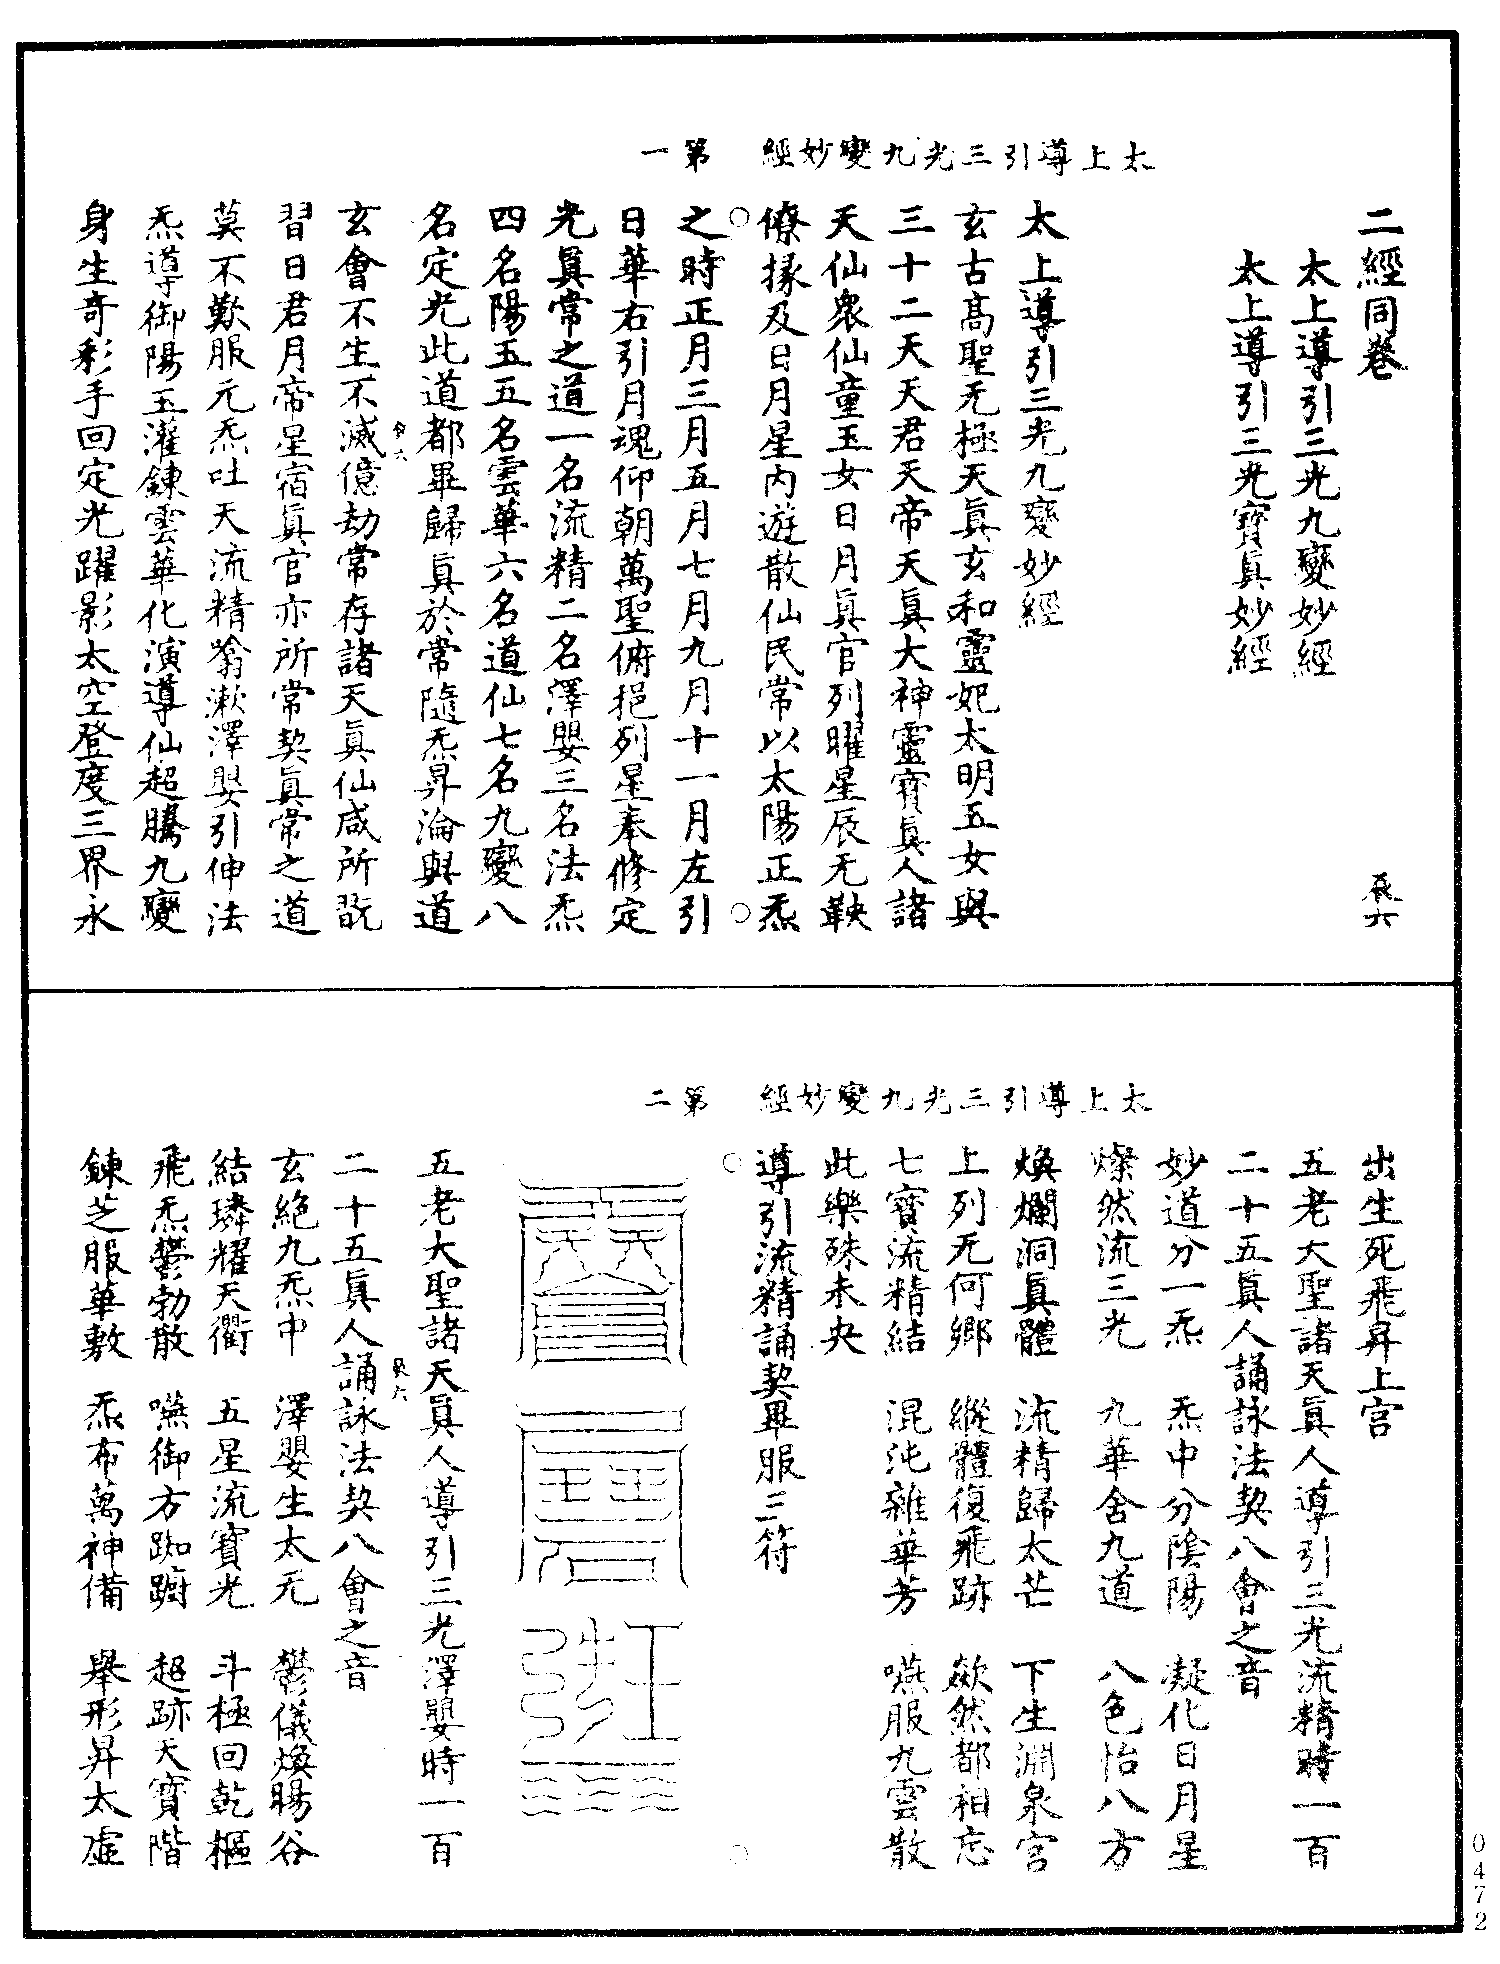 二經同卷
太上導引三光九變妙經
太上導引三光寶真妙經
太上導引三光九變妙經　第一
太上導引三光九變妙經
玄古髙聖无極天眞玄和靈妃太明五女與
三十二天天君天帝天眞大神靈寳眞人諸
天仙衆仙童玉女日月眞官列曜星辰无鞅
僚掾及日月星内遊散仙民常以太陽正炁
之時正月三月五月七月九月十一月左引
日華右引月魂仰朝萬聖俯挹列星奉修定
光眞常之道一名流精二名澤嬰三名法炁
四名陽五五名雲華六名道仙七名九變八
名定光此道都畢歸眞於常隨炁昇淪與道
玄會不生不滅億劫常存諸天眞仙咸所翫
習日君月帝星宿眞官亦所常契眞常之道
莫不歎服元炁吐天流精翕漱澤嬰引伸法
炁導御陽玉灌鍊雲華化演導仙超騰九變
身生奇彩手回定光躍影太空登度三界永
太上導引三光九變妙經　第二
出生死飛昇上宫
五老大聖諸天眞人導引三光流精時一百
二十五眞人誦詠法契八會之音
妙道分一炁　炁中分陰陽　凝化日月星
燦然流三光　九華含九道　八色怡八方
煥爛洞眞體　流精歸太芒　下生淵泉宫
上列无何鄉　縱體復飛跡　歘然都相忘
七寳流精結　混沌雜華芳　嚥服九雲散
此樂殊未央
導引流精誦契畢服三符
五老大聖諸天眞人導引三光澤嬰時一百
二十五眞人誦詠法契八會之音
玄絶九炁中　澤嬰生太无　鬱儀煥暘谷
結璘耀天衢　五星流寳光　斗極回乾樞
飛炁鬱勃散　嚥御方踟蹰　超跡天寳階
鍊芝服華敷　炁布萬神備　舉形昇太虚
0472